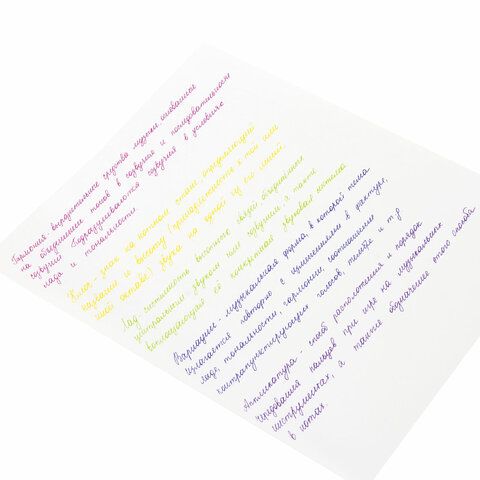 Гармония - выразительные средства музыки, основанные
на объединении тонов в созвучия и последовательности
созвучий. Подразумеваются созвучия в условиях
лада и тональности.
Ключ - знак на нотном стане, определяющий
название и высоту (принадлежность к той или
иной октаве) звука на одной из его линий.
Лад - системность высотных связей, объединённых
центральным звуком или созвучием, а также
воплощающая её конкретная звуковая система
Вариации - музыкальная форма, в которой тема
излагается повторно с изменениями в фактуре,
ладе, тональности, гармонии, соотношении
контрапунктирующих голосов, тембре и т.р
Аппликатура - способ расположения и порядок
чередования пальцев при игре на музыкальных
инструментах, а также обозначение этого способа
в нотах.